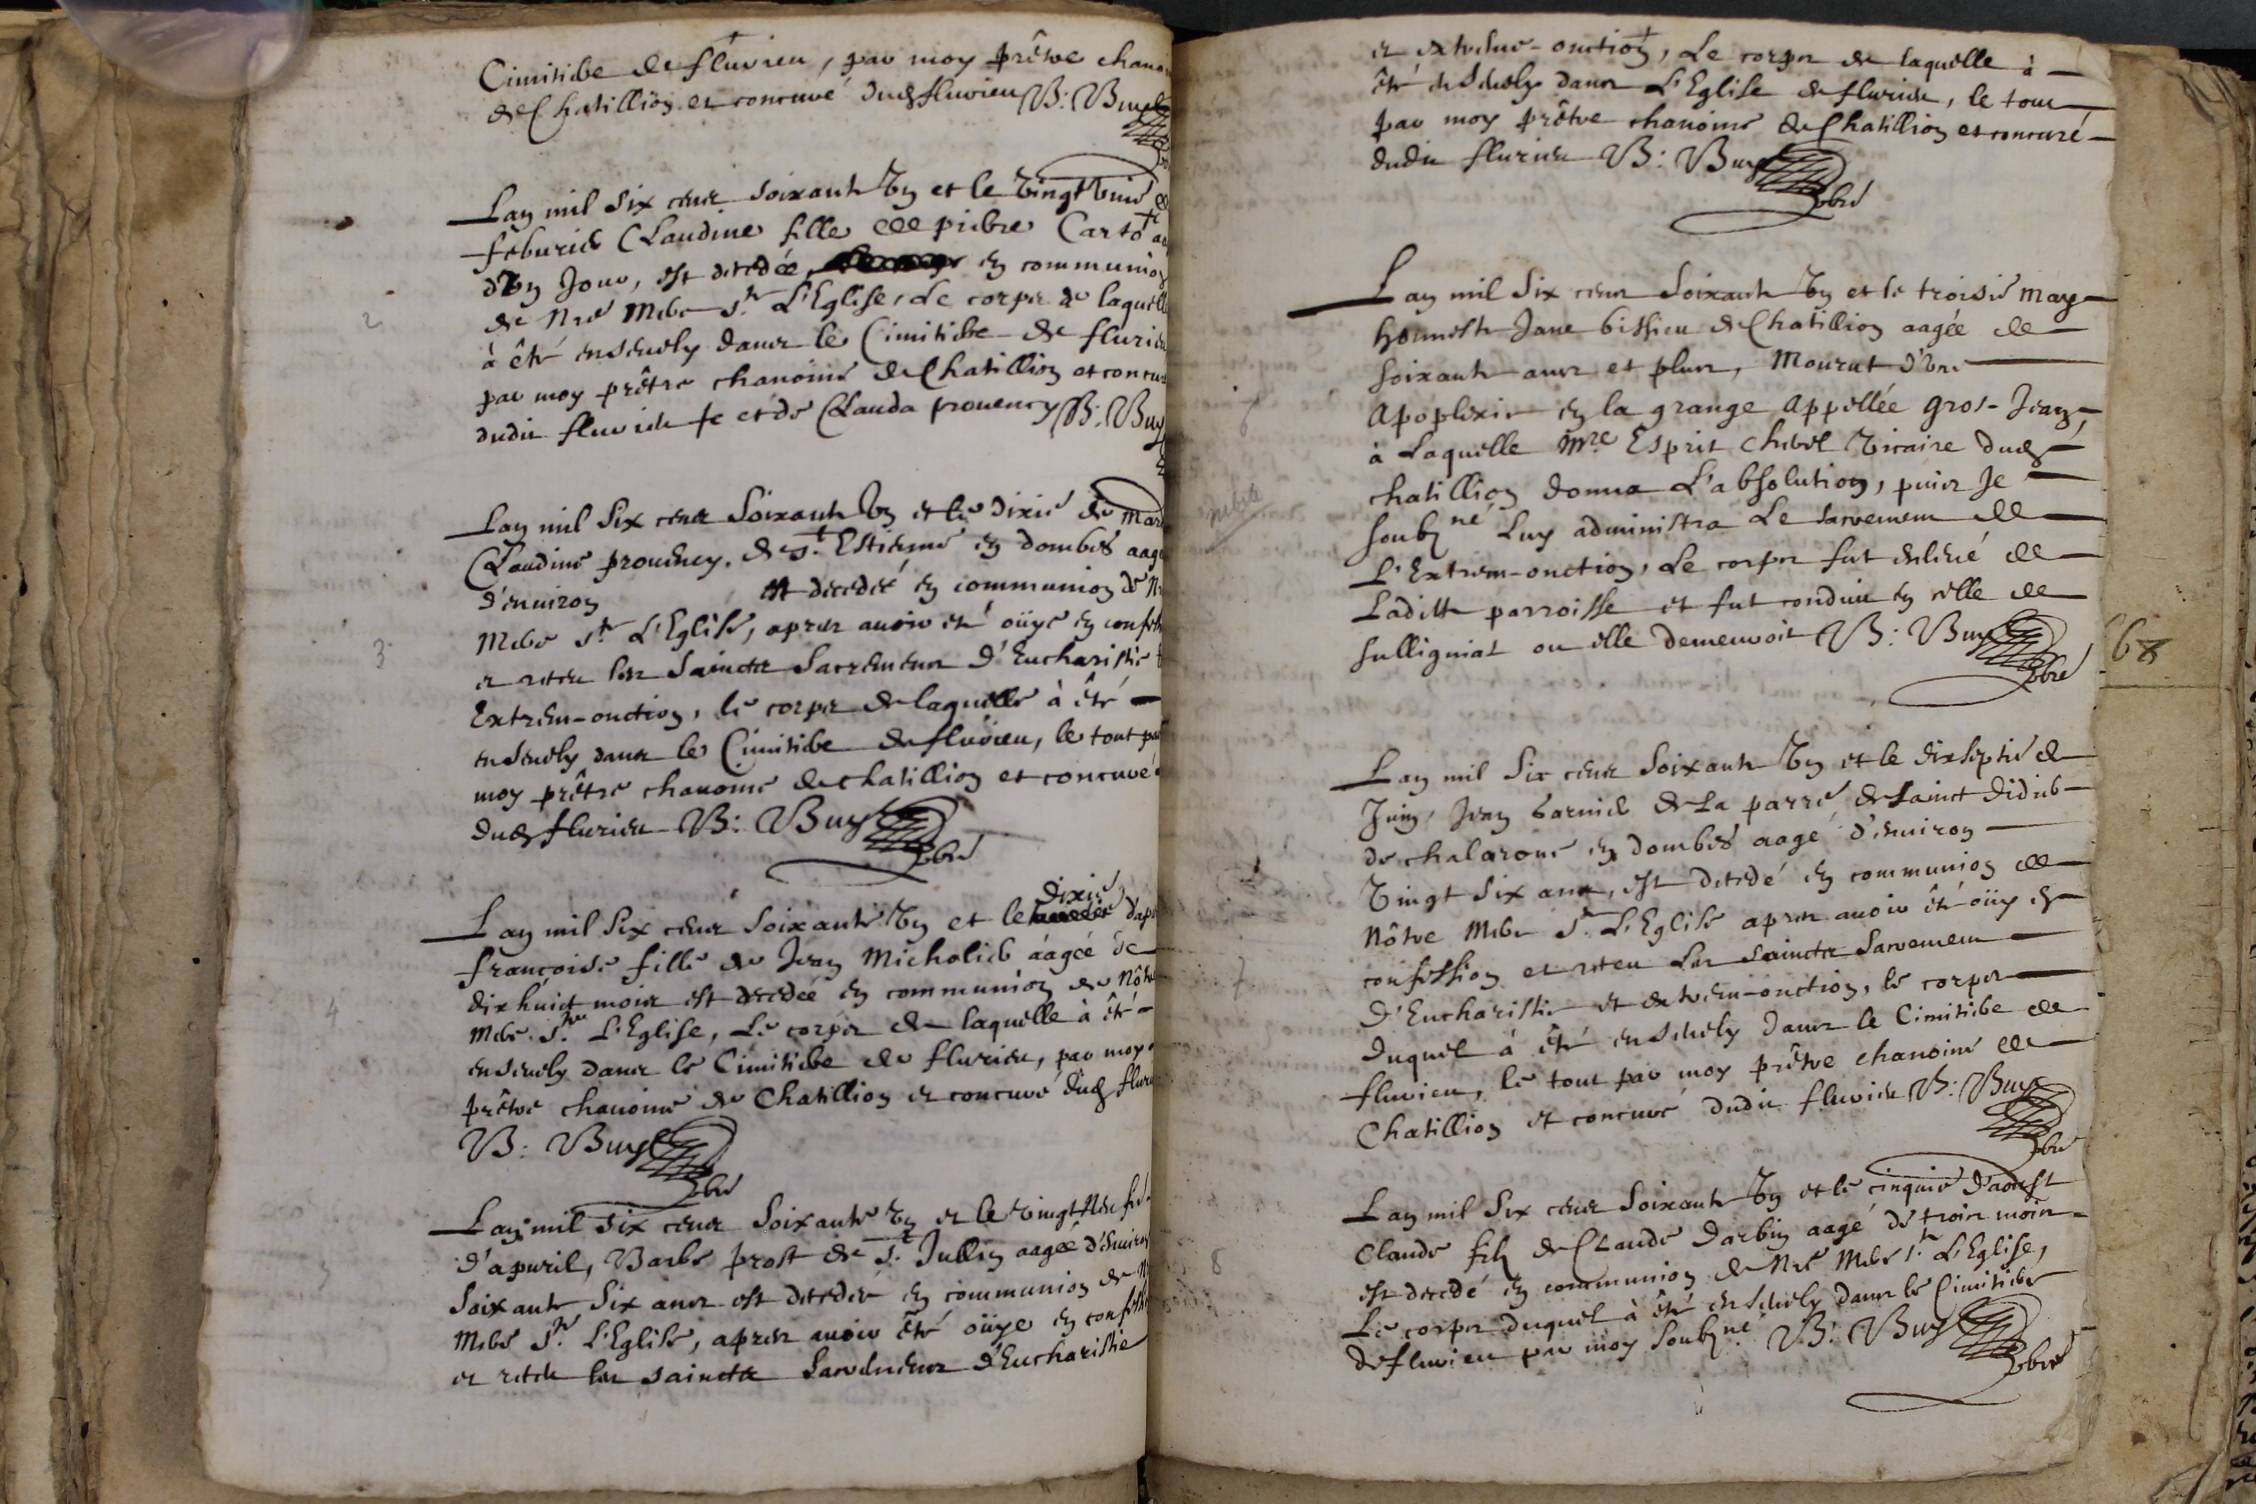 Cimitiere de flurieu, par moy prêtre chano
de Chatillion et concuré dud flurieu B: Buy
Lan mil six cens soixante Un et le Vingt Unié de
feburier Claudine fille de pierre Carto aagée
d'Un Jour, est decedée en communion
de Nre Mere Ste L'Eglise, Le corps de laquelle
à êté ensevely dans le Cimitiere de flurieu
par moy prêtre chanoine de Chatillion et concuré
dudit flurieu + et de Clauda prouency B: Buy
2
Lan mil six cens soixante Un et le dixié de Mars
Claudine prouency de St Estienne en dombes aagée
d'enuiron est decedée en communion de Nre
Mere Ste L'Eglise, apres auoir eté oüye en confession
et receu les Saincts Sacremens d'Eucharistie &
Extrem-onction, le corps de laquelle à êté
ensevely dans le Cimitiere de flurieu, le tout par
moy prêtre chanoine de chatillion et concuré
dud flurieu B: Buy pbre
3
dixié
Lan mil six cens soixante Un et le d'apuril
françoise fille de Jean Micholier áagée de
dix huict mois est decedée en communion de Nôtre
Mere Ste L'Eglise, Le corps de laquelle à êté
ensevely dans le Cimitiere de flurieu, par moy
prêtre chanoine de Chatillion et concuré dud flurieu
B: Buy pbre
4
Lan mil six cens soixante Un et le Vingt Neufié
d'apuril, Barbe prost de St Jullin aagée d'enuiron
soixante six ans est decedée en communion de Nre
Mere Ste L'Eglise, apres auoir êté oüye en confession
et receu les saincts Sacremens d'Eucharistie
5
et extreme-onction, Le corps de laquelle à
êté ensevely dans L'Eglise de flurieu, le tout
par moy prêtre chanoine de Chatillion et concuré
dudit flurieu B: Buy pbre
Lan mil six cens soixante Un et le troisié May
honneste Jane bissieu de Chatillion aagée de
soixante ans et plus, Mourut d'Une
Apoplexie en la grange Appellée gros-Jean,
à Laquelle Mre Esprit Chevel Vicaire dud
chatillion donna L'absolution, puis Je
soubné Luy administra Le sacrement de
L'Extrem-onction, Le corps fut enlevé de
Laditte parroisse et fut conduit en celle de
sulligniat ou elle demeuroit B: Buy pbre
6
68
Lan mil six cens soixante Un et le dixseptié de
Juin, Jean barnier de La parre de sainct didier
de chalarone en dombes aagé d'enuiron
Vingt six ans, est decedé en communion de
Nôtre Mere Ste L'Eglise apres auoir êté oüy en
confession et receu Les Saincts Sacremens
D'Eucharistie et extrem-onction, le corps
duquel à êté ensevely dans le Cimitiere de
flurieu, le tout par moy prêtre chanoine de
Chatillion et concuré dudit flurieu B: Buy
pbre
7
Lan mil six cens soixante Un et le cinquié d'aoust
Claude filz de Claude darbin aagé de trois mois
est decedé en communion de Nre Mere Ste L'Eglise,
Le corps duquel à êté ensevely dans le Cimitiere
de flurieu par moy soubné B: Buy pbre
8